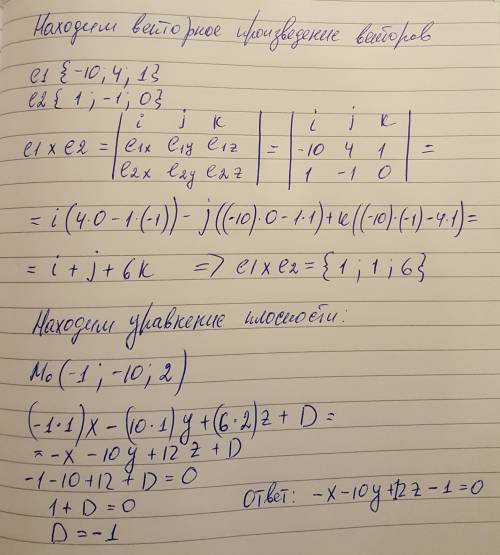 Находим векторное произведение векторов
e1 {-10; 4; 1}
e2 { 1 ; -1; 0}
e1 x e2 = | i j k | = | i j k | =
| e1x e1y e1z | | -10 4 1 |
| e2x e2y e2z | | 1 -1 0 |
= i (4·0 - 1·(-1)) - j((-10)·0 - 1·1) + k((-10)·(-1) - 4·1) =
= i + j + 6k => e1 x e2 = {1 ; 1 ; 6}
Находим уравнение плосности:
M0 (-1 ; -10; 2)
(-1·1)x - (10·1)y + (6·2)z + D =
= -x - 10y + 12z + D
-1 - 10 + 12 + D = 0
1 + D = 0
D = -1
Ответ: -x - 10y + 12z - 1 = 0